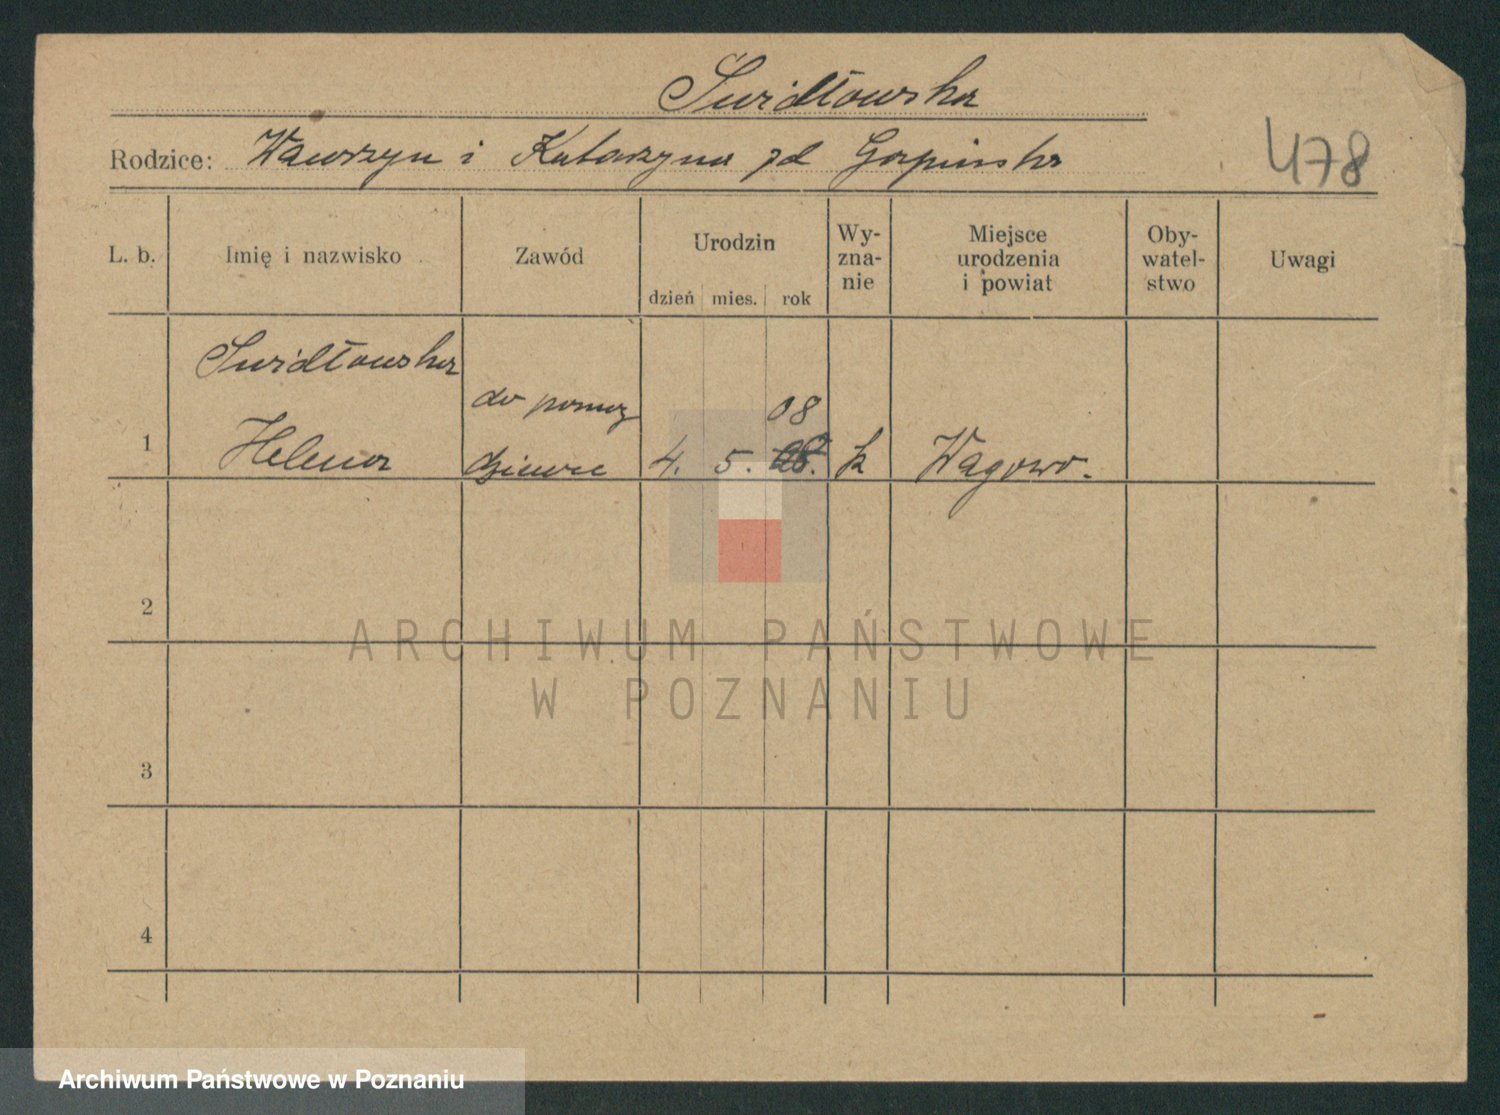 Swidłowska
Rodzice: Wawrzyn i Katarzyna zd Gospińska
478
L. b. Imię i nazwisko Zawód Urodzin dzień mies. rok Wy-zna-nie Miejsce urodzenia i powiat Oby-watel-stwo Uwagi
Swidłowska
do pomoz
08
1 Helena 4. 5. k Wagowo.
2
3
4
ARCHIWUM PAŃSTWOWE
W POZNANIU
Archiwum Państwowe w Poznaniu